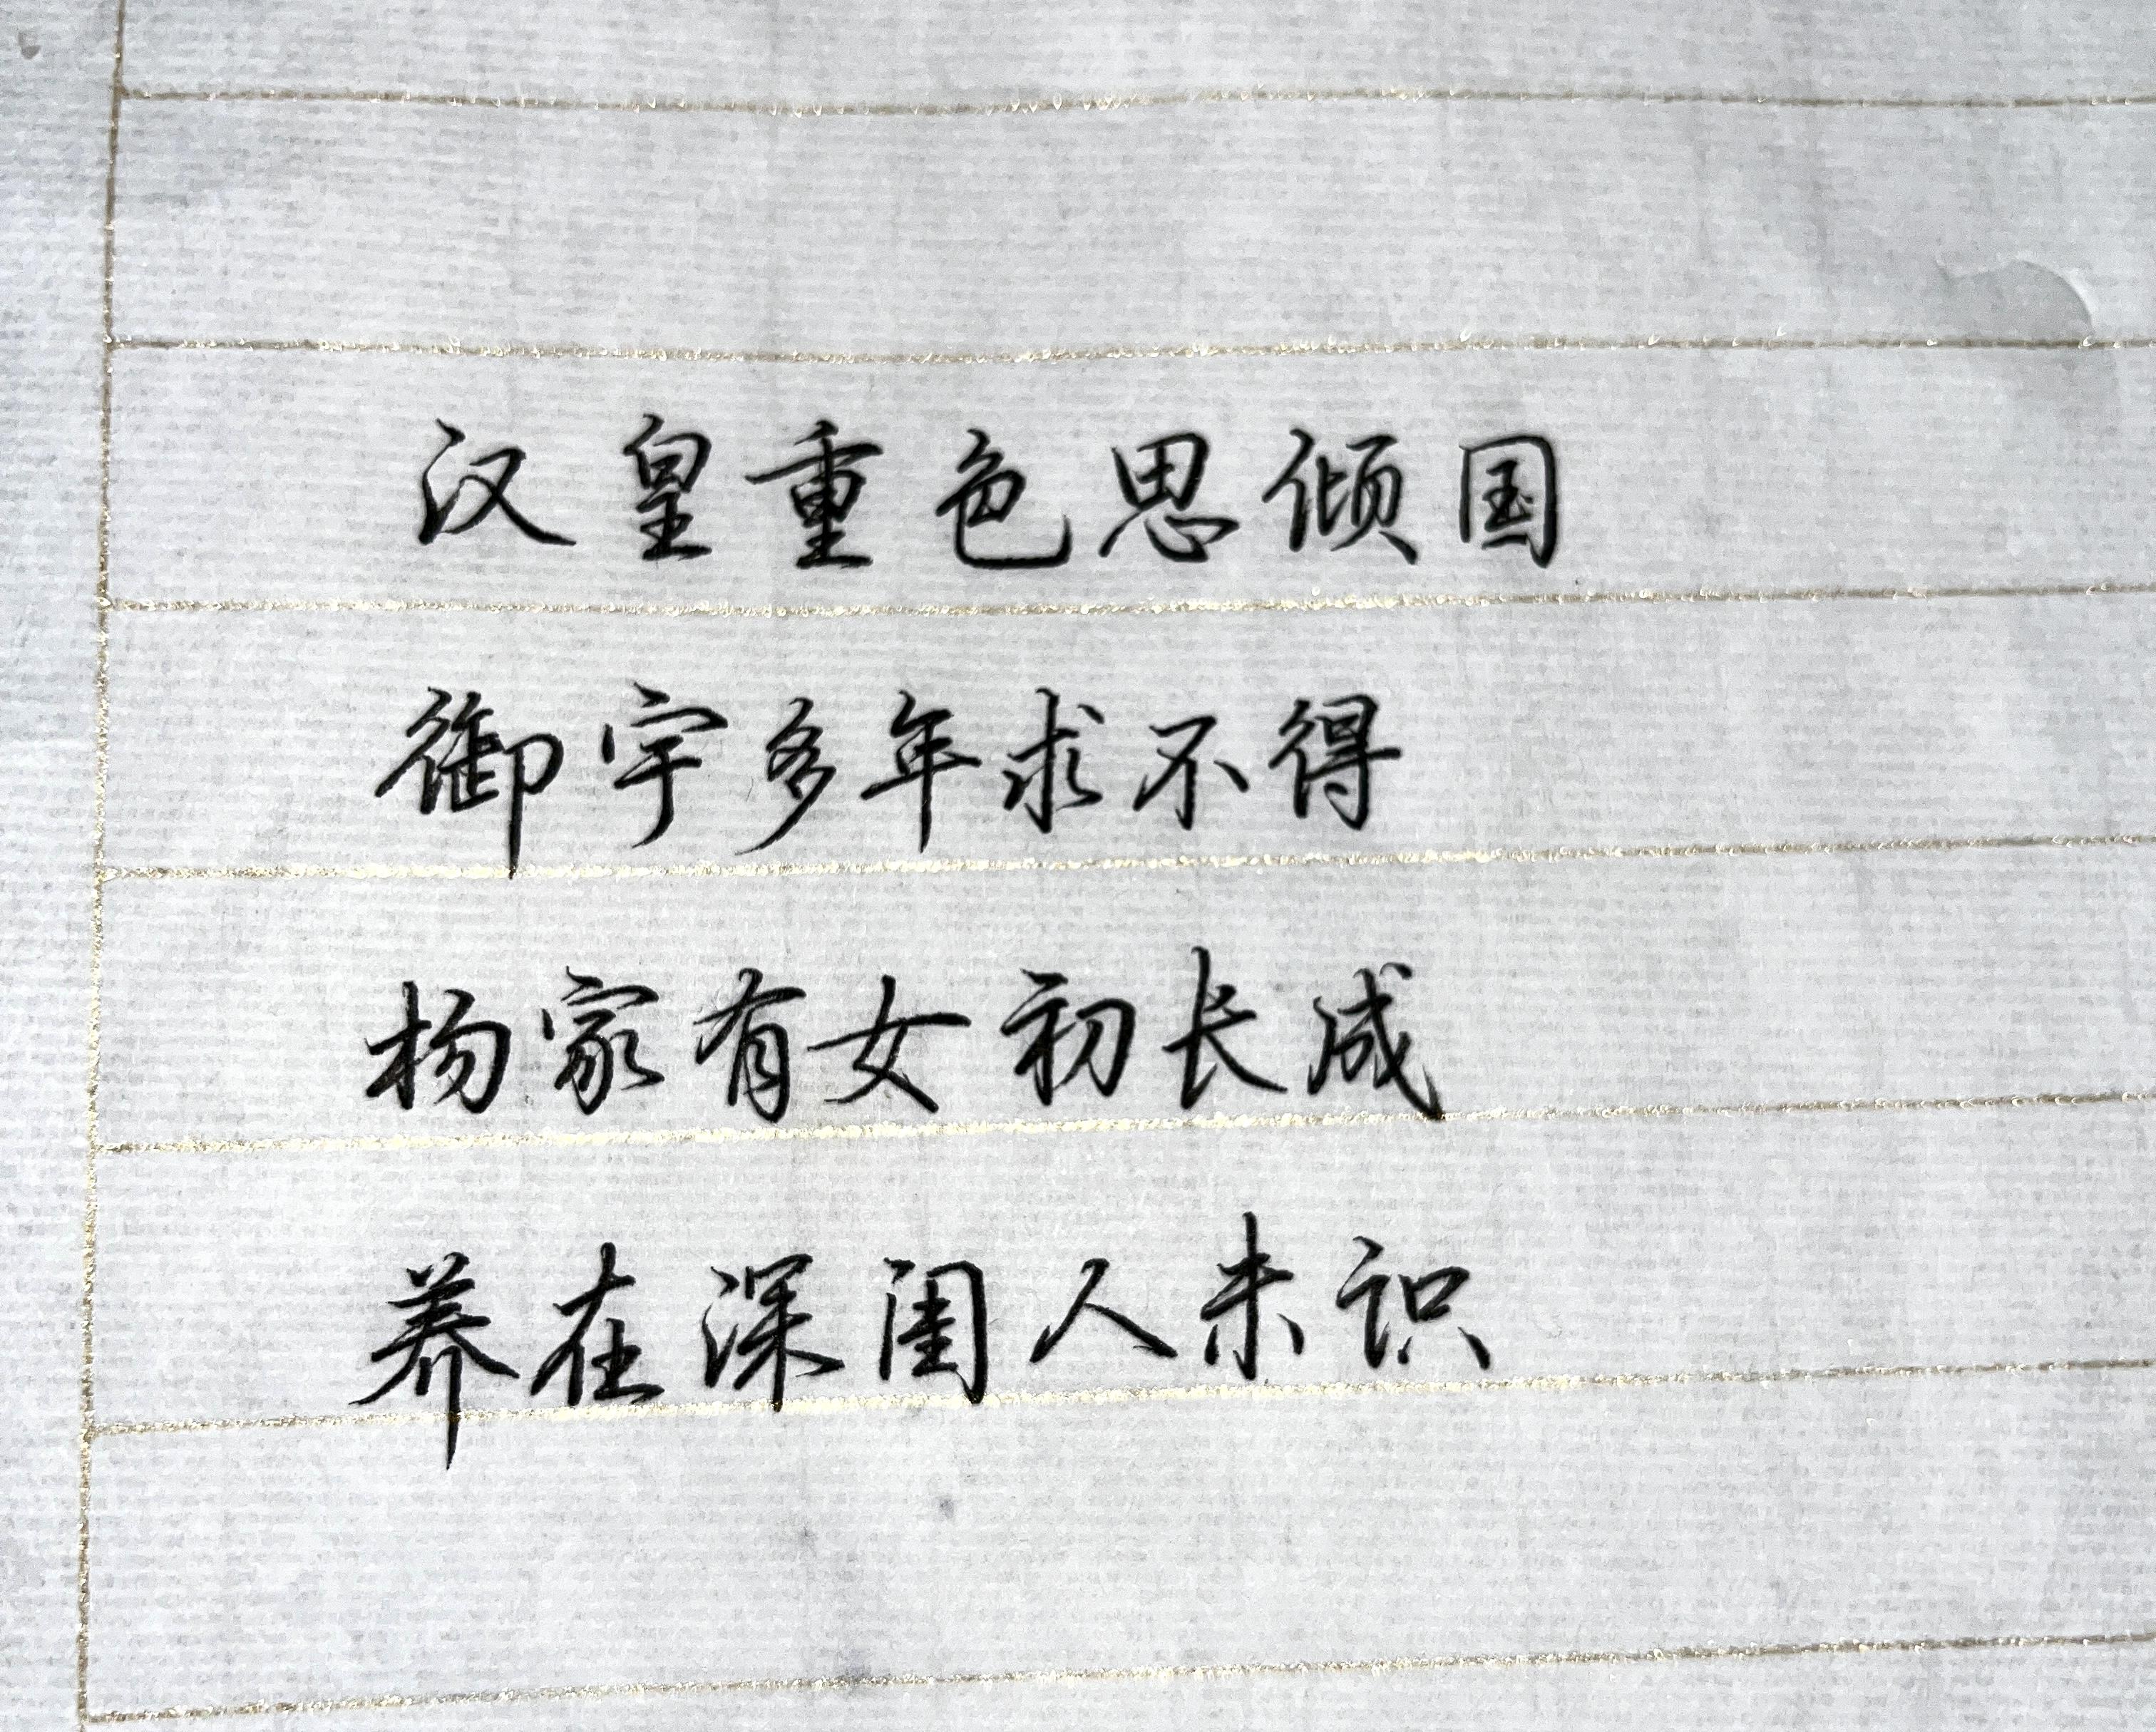 汉皇重色思倾国
御宇多年求不得
杨家有女初长成
养在深闺人未识